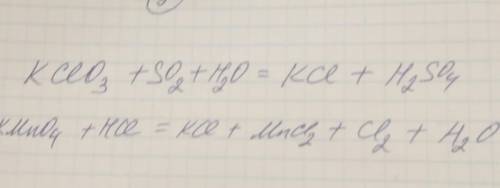 KClO₃ + SO₂ + H₂O = KCl + H₂SO₄
KMnO₄ + HCl = KCl + MnCl₂ + Cl₂ + H₂O